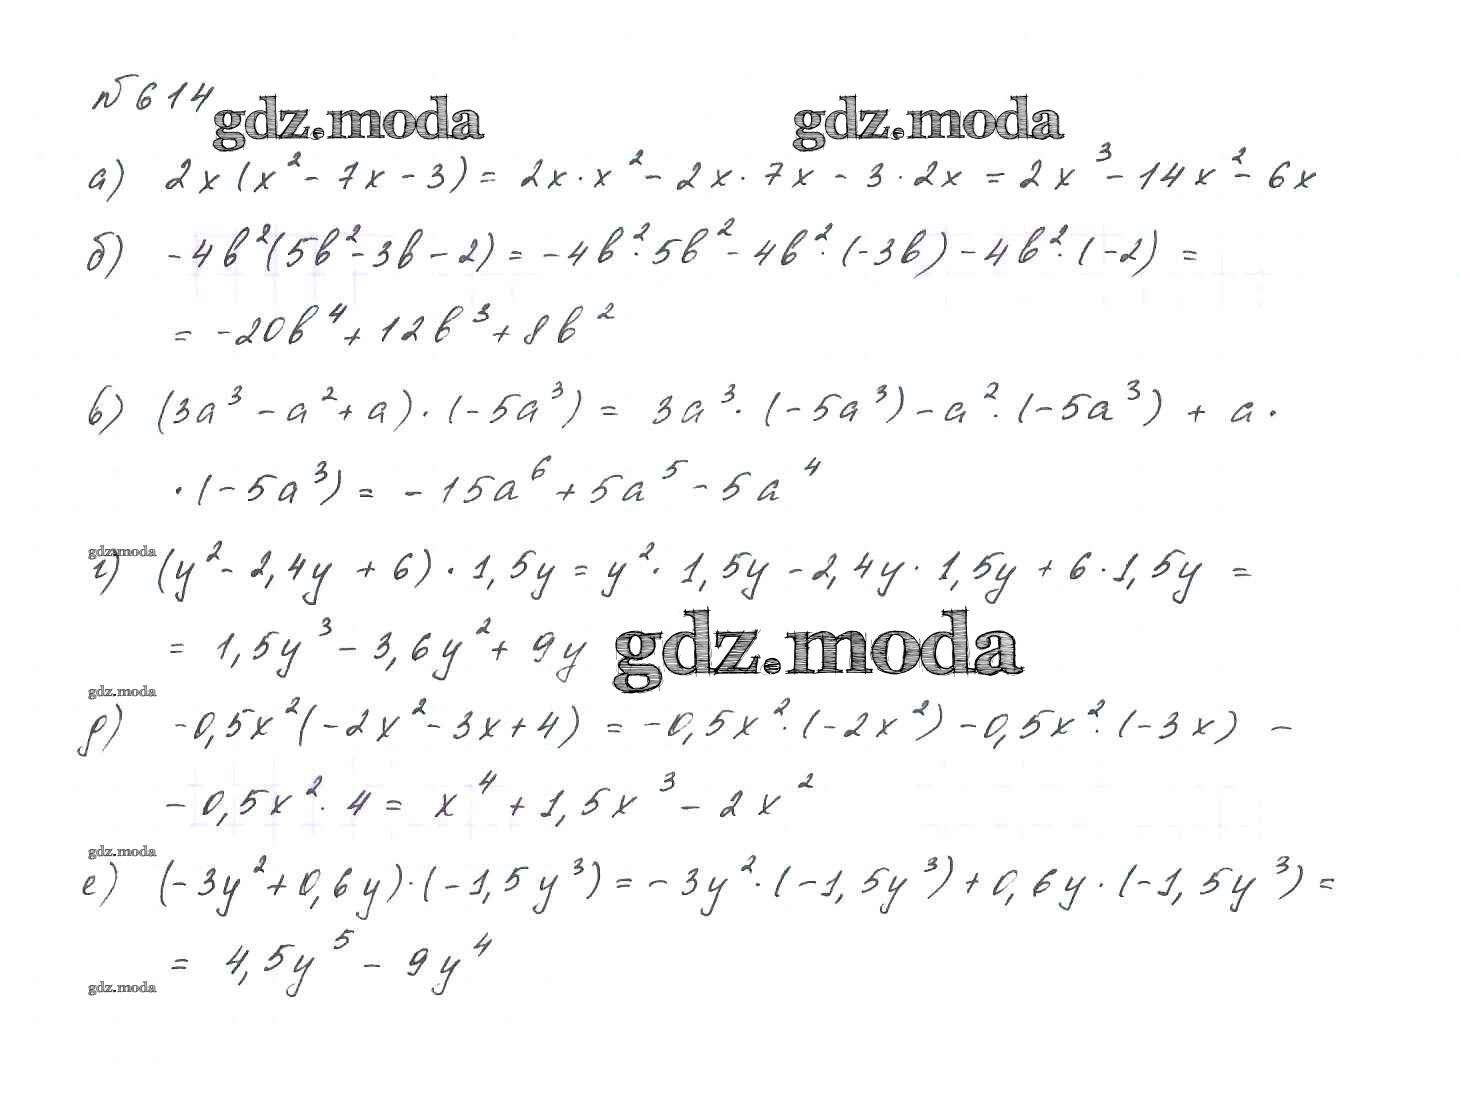 №614
gdz.moda gdz.moda
а) 2x(x² - 7x - 3) = 2x · x² - 2x · 7x - 3 · 2x = 2x³ - 14x² - 6x
б) -4b²(5b² - 3b - 2) = -4b² · 5b² - 4b² · (-3b) - 4b² · (-2) =
= -20b⁴ + 12b³ + 8b²
в) (3a³ - a² + a) · (-5a³) = 3a³ · (-5a³) - a² · (-5a³) + a ·
· (-5a³) = -15a⁶ + 5a⁵ - 5a⁴
gdz.moda
г) (y² - 2,4y + 6) · 1,5y = y² · 1,5y - 2,4y · 1,5y + 6 · 1,5y =
= 1,5y³ - 3,6y² + 9y
gdz.moda
gdz.moda
д) -0,5x²(-2x² - 3x + 4) = -0,5x² · (-2x²) - 0,5x² · (-3x) -
- 0,5x² · 4 = x⁴ + 1,5x³ - 2x²
gdz.moda
е) (-3y² + 0,6y) · (-1,5y³) = -3y² · (-1,5y³) + 0,6y · (-1,5y³) =
= 4,5y⁵ - 9y⁴
gdz.moda